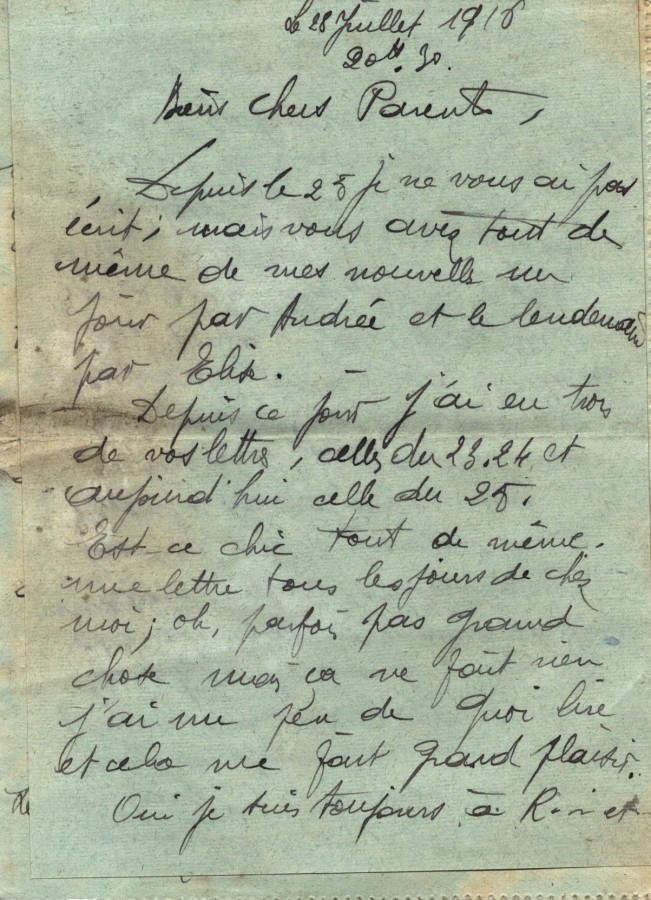 Le 28 Juillet 1916
20h 30.
Biens chers Parents,
Depuis le 25 je ne vous ai pas
écrit; mais vous avez tout de
même de mes nouvelles un
jour par Andrée et le lendemain
par Elise.
Depuis ce jour j'ai eu trois
de vos lettres, celles du 23.24 et
aujourd'hui celle du 25.
Est-ce chic tout de même.
une lettre tous les jours de chez
moi; oh, parfois pas grand
chose mais ça ne fait rien
j'ai un peu de quoi lire
et cela me fait grand plaisir.
Oui je suis toujours à R... et